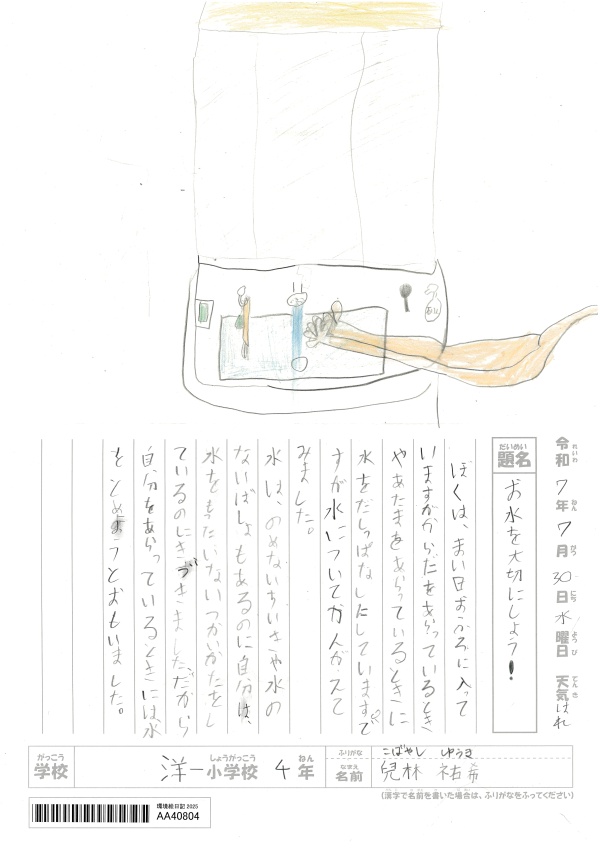 令和7年7月30日水曜日 天気はれ
れいわ ねん がつ にち ようび てんき
だいめい
題名 お水を大切にしよう!
ぼくは、まい日おふろに入って
いますがからだをあらっているとき
やあたまをあらっているときに
水をだしっぱなしにしていますで
すが水についてかんがえて
みました。
水は、のめないちいきや水の
ないばしょもあるのに自分は、
水をもたいないつかいかたをし
ているのにきづきました。だから
自分をあらっているときには水
をとめようとおもいました。
がっこう しょうがっこう ねん
学校 洋一小学校 4年
ふりがな こばやし ゆうき
なまえ
名前 兒林 祐希
(漢字で名前を書いた場合は、ふりがなをふってください)
環境絵日記 2025
AA40804